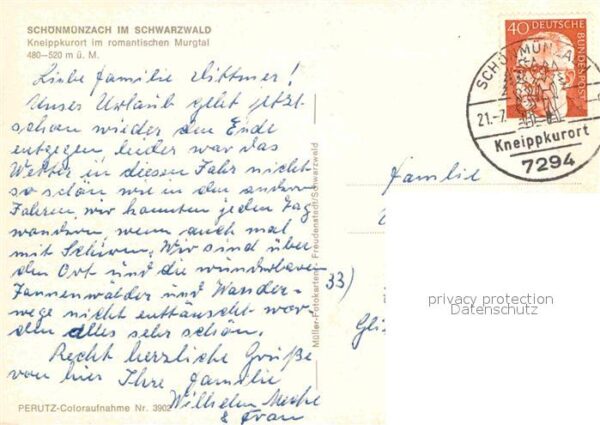 SCHÖNMÜNZACH IM SCHWARZWALD
Kneippkurort im romantischen Murgtal
480—520 m ü. M.
Liebe Familie Dittmer!
Unser Urlaub geht jetzt
schon wieder dem Ende
entgegen, leider war das
Wetter in diesem Jahr nicht
so schön wie in den andern
Jahren, wir konnten jeden Tag
wandern, wenn auch mal
mit Schirm. Wir sind über
den Ort und die wunderbaren
Tannenwälder und Wander-
wege nicht enttäuscht wor-
den alles sehr schön.
Recht herzliche Grüße
von hier Ihre Familie
Wilhelm
& Frau
PERUTZ-Coloraufnahme Nr. 3902
Müller-Fotokarten, Freudenstadt/Schwarzwald
40 DEUTSCHE BUNDESPOST
SCHÖNMÜNZACH
21.-7.
Kneippkurort
7294
Familie
33)
privacy protection
Datenschutz